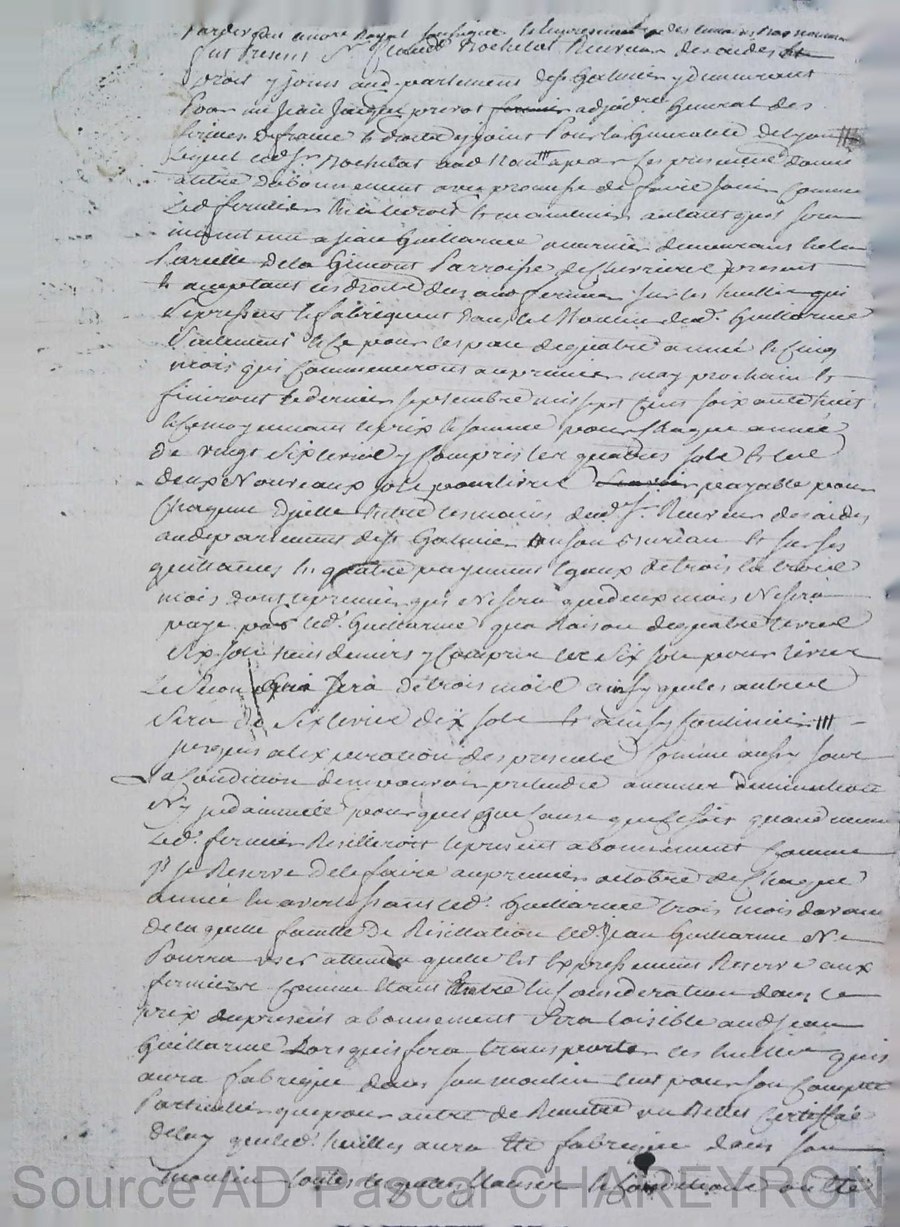 Pardevant le notre Royal soussigné et en presence des temoins bas nommes
fut Present Sr Claude Rochetat Receveur des aides et
Droit y joins aud. partement de St Galmier y demeurant
Pour me Jean Jacques prevot adjudre General des
fermes de france et droits y joint Pour la Generalité de Lyon
Lequel led. Sr Rochetat aud Nom a par ces presentes donné
a titre Dabonnement avec promesse de faire jouir comme
Led fermier et maintenir autant quil sera
maintenu a jean Guillarme meunier demeurant
Parcelle de la Gimont Parroisse de Chevrieres present
et acceptant les droits deus aud fermier sur les huilles qui
Sepressent et fabriquent dans le Moulin dud. Guillarme
Seulement et ce pour lespace de quatre année et Cinq
mois qui Commenceront au premier may prochain et
finiront le dernier septembre mil sept Cent soixante huit
et ce moyennant le prix et somme pour Chaque année
de vingt Six livres y Compris les quatres sols et les
deux Nouveaux sols pour livres payable pour
Chaque entre les mains dud Sr. Receveur des aides
au departement de St Galmier en son Bureau et sur ses
quittances en quatre payement Egaux de trois en trois
mois dont le premier qui Ne sera que deux mois Ne sera
payé par led. Guillarme qua Raison de quatre livres
Six sols huit deniers y Compris les Six sols pour livres
Le Second Sera de trois mois ainsy que les autres
Sera de Six livres dix sols et ainsy Continuer
jusques a lexpiration des presentes Comme aussy sous
La Condition de ne pouvoir pretendre aucune diminution
Ny jndamnité pour quelque Cause que ce soit quand meme
Led. fermier Resilieroit le present abonnement Comme
Jl se Reserve de le faire au premier octobre de Chaque
année En avertissant led. Guillarme trois mois davance
de laquelle faculté de Resiliation led. Jean Guillarme Ne
Pourra user attendu quelle est Expressement Reservée aux
fermiers Comme Etant Entré En Consideration dans le
prix du present abonnement Sera loisible aud Jean
Guillarme Lors quil fera transporter les huilles quil
aura fabriqué dans son moulin tant pour son Compte
Particulier que pour autre de Remettre un Billet Certiffié
de luy que led. huilles aura été fabriqué dans son
moulin toutes lesquelles Clauses et Conditions ont été
Source AD Pascal CHAREYRON